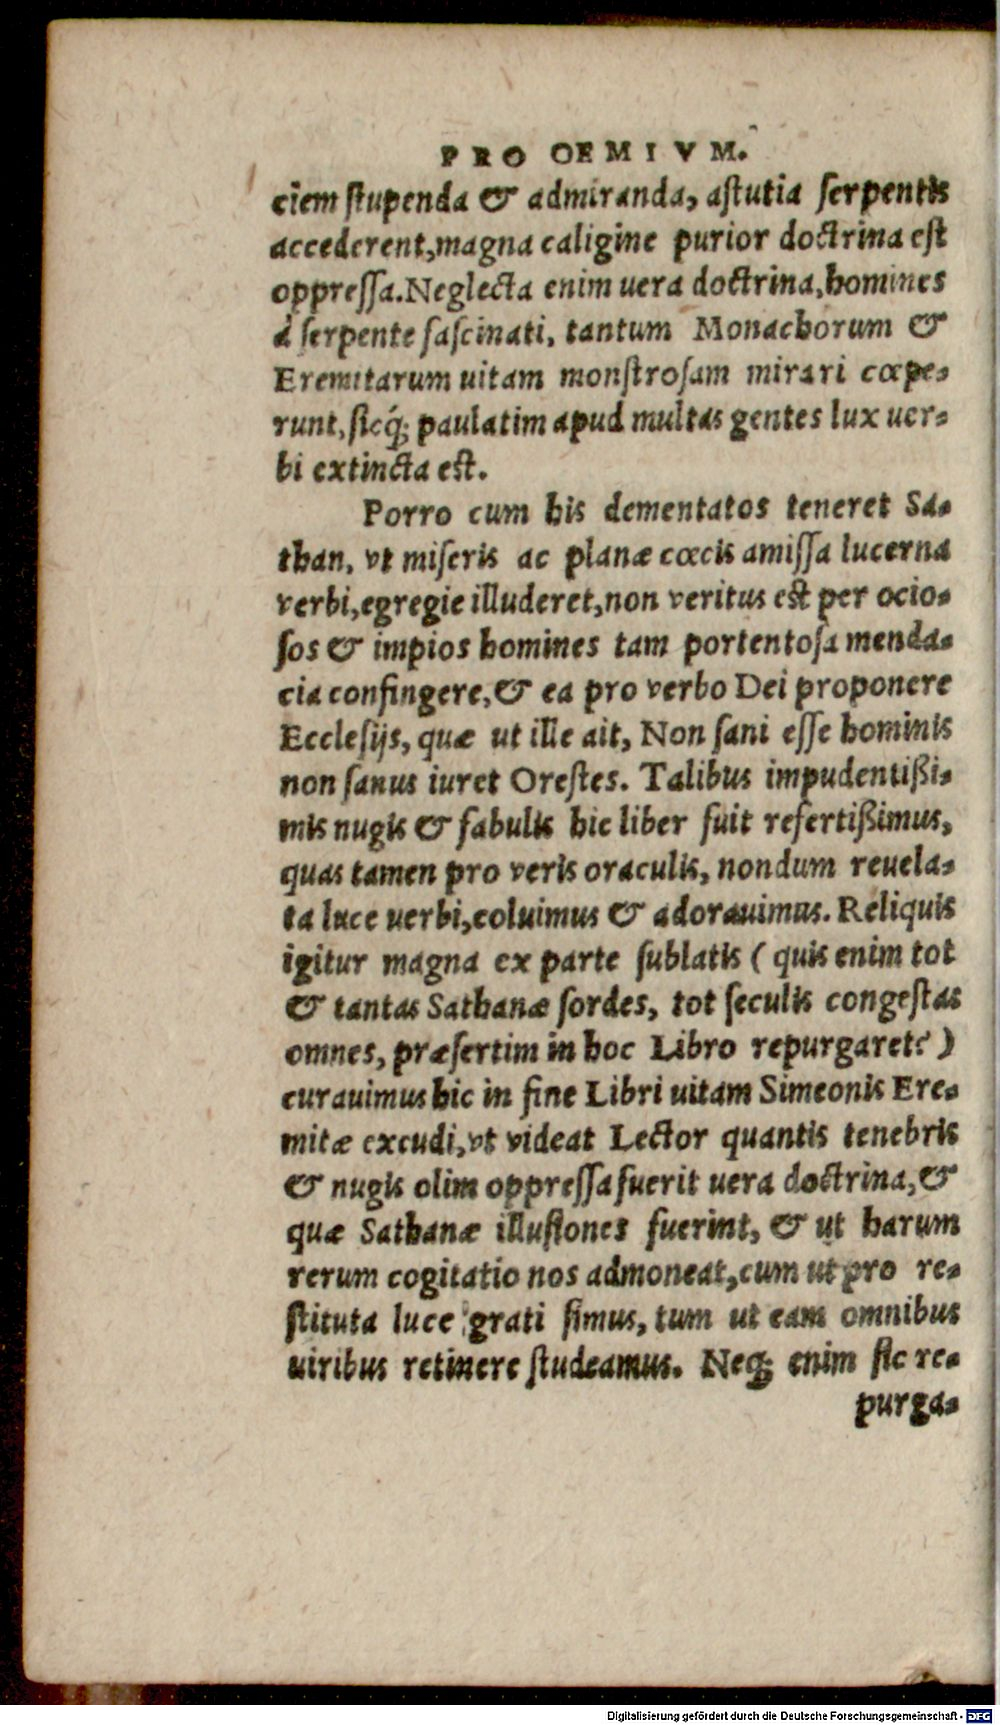 PROOEMIVM.
ciem ſtupenda & admiranda, aſtutia ſerpentis
accederent, magna caligine purior doctrina eſt
oppreſſa. Neglecta enim uera doctrina, homines
à ſerpente faſcinati, tantum Monachorum &
Eremitarum uitam monſtroſam mirari cœpe-
runt, ſicq́; paulatim apud multas gentes lux uer-
bi extincta eſt.
Porro cum his dementatos teneret Sa-
than, vt miſeris ac planæ cœcis amiſſa lucerna
verbi, egregie illuderet, non veritus eſt per ocio-
ſos & impios homines tam portentoſa menda-
cia confingere, & ea pro verbo Dei proponere
Eccleſijs, quæ ut ille ait, Non ſani eſſe hominis
non ſanus iuret Oreſtes. Talibus impudentißi-
mis nugis & fabulis hic liber fuit refertißimus,
quas tamen pro veris oraculis, nondum reuela-
ta luce uerbi, coluimus & adorauimus. Reliquis
igitur magna ex parte ſublatis ( quis enim tot
& tantas Sathanæ ſordes, tot ſeculis congeſtas
omnes, præſertim in hoc Libro repurgaret? )
curauimus hic in fine Libri uitam Simeonis Ere-
mitæ excudi, vt videat Lector quantis tenebris
& nugis olim oppreſſa fuerit uera doctrina, &
quæ Sathanæ illuſiones fuerint, & ut harum
rerum cogitatio nos admoneat, cum ut pro re-
ſtituta luce grati ſimus, tum ut eam omnibus
uiribus retinere ſtudeamus. Neq; enim ſic re-
purga-
Digitalisierung gefördert durch die Deutsche Forschungsgemeinschaft - DFG